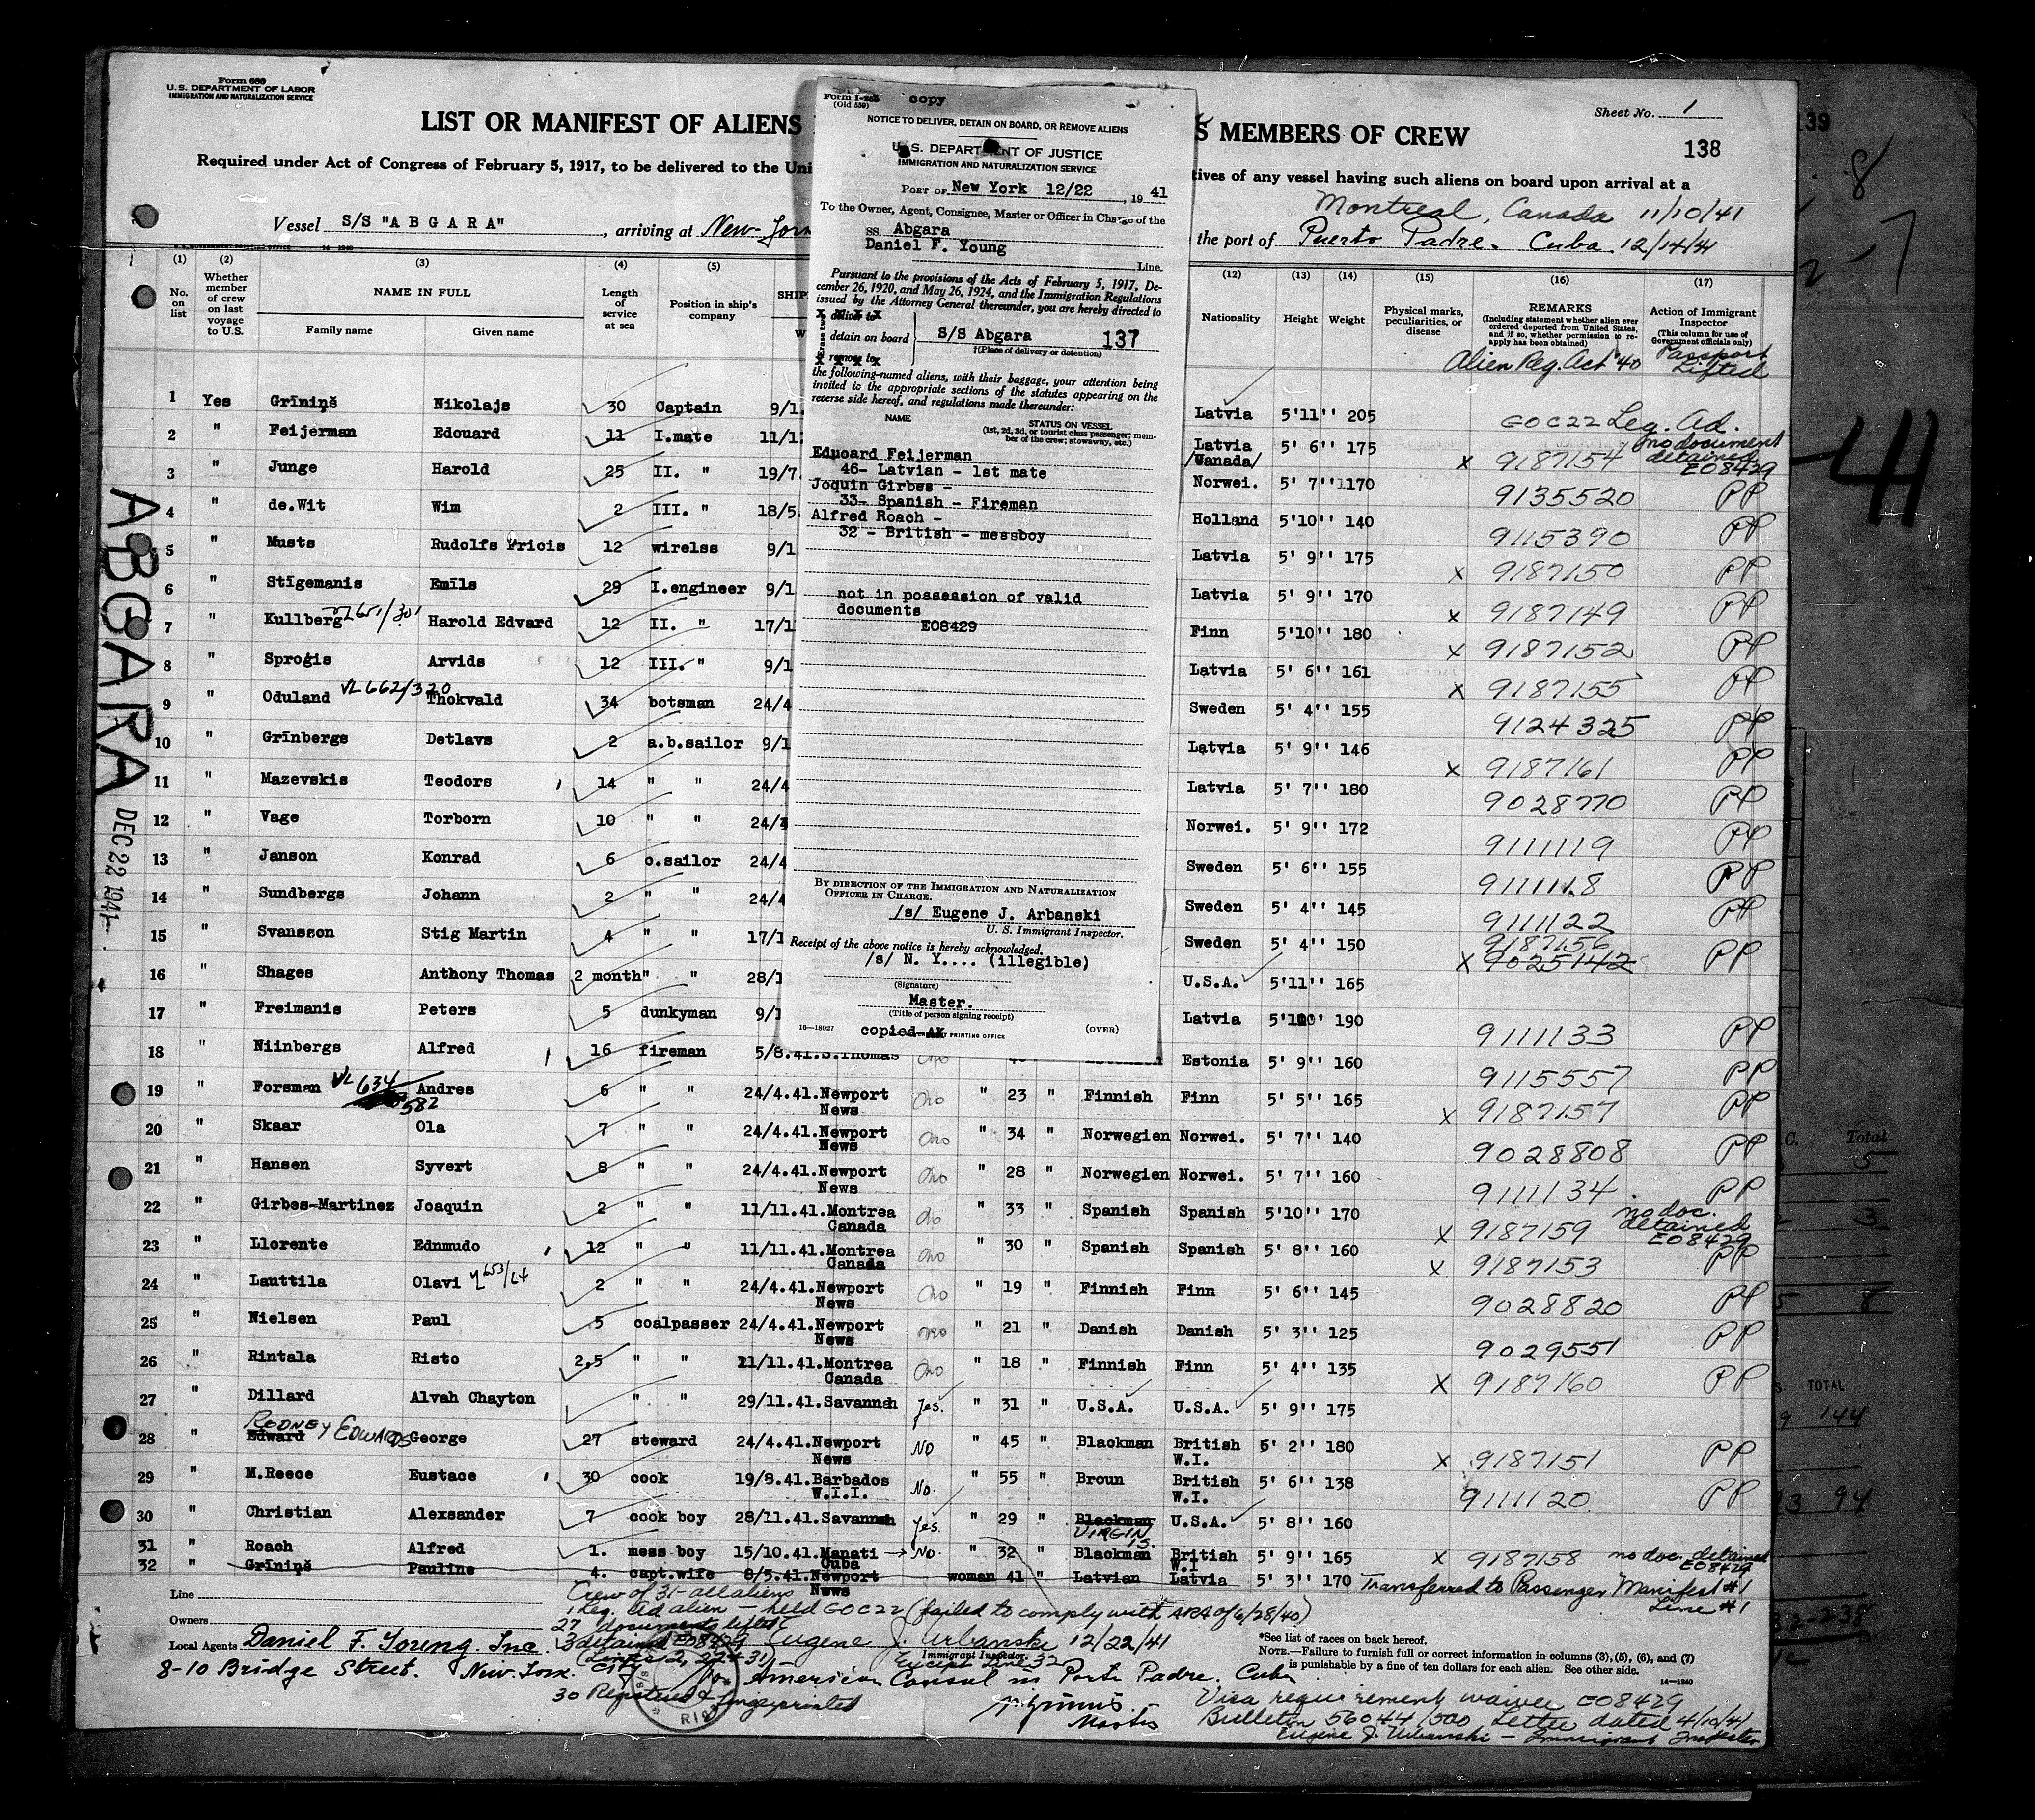 Form 680
U.S. DEPARTMENT OF LABOR
IMMIGRATION AND NATURALIZATION SERVICE
Sheet No. 1
LIST OR MANIFEST OF ALIENS
S MEMBERS OF CREW
138
139
Required under Act of Congress of February 5, 1917, to be delivered to the Uni
tives of any vessel having such aliens on board upon arrival at a
Montreal, Canada 11/10/41
Vessel S/S "ABGARA", arriving at New-York
the port of Puerto Padre. Cuba 12/14/41
Form I-259
(Old 559)
copy
NOTICE TO DELIVER, DETAIN ON BOARD, OR REMOVE ALIENS
U. S. DEPARTMENT OF JUSTICE
IMMIGRATION AND NATURALIZATION SERVICE
PORT OF New York 12/22, 19 41
To the Owner, Agent, Consignee, Master or Officer in Charge of the
SS. Abgara
Daniel F. Young
Line.
Pursuant to the provisions of the Acts of February 5, 1917, De-
cember 26, 1920, and May 26, 1924, and the Immigration Regulations
issued by the Attorney General thereunder, you are hereby directed to
detain on board S/S Abgara 137
†(Place of delivery or detention)
remove to
the following-named aliens, with their baggage, your attention being
invited to the appropriate sections of the statutes appearing on the
reverse side hereof, and regulations made thereunder:
NAME
STATUS ON VESSEL
(1st, 2d, 3d, or tourist class passenger; mem-
ber of the crew; stowaway, etc.)
Eduoard Feijerman
46- Latvian - 1st mate
Joquin Girbes -
33- Spanish - Fireman
Alfred Roach -
32 - British - messboy
not in possession of valid
documents
E08429
BY DIRECTION OF THE IMMIGRATION AND NATURALIZATION
OFFICER IN CHARGE.
/s/ Eugene J. Arbanski
U. S. Immigrant Inspector.
Receipt of the above notice is hereby acknowledged.
/s/ N. Y.... (illegible)
(Signature)
Master.
(Title of person signing receipt)
16—18927
copied AK
PRINTING OFFICE
(OVER)
(1) (2) (3) (4) (5) (12) (13) (14) (15) (16) (17)
No. on list
Whether member of crew on last voyage to U.S.
NAME IN FULL
Family name
Given name
Length of service at sea
Position in ship's company
Nationality
Height
Weight
Physical marks, peculiarities, or disease
REMARKS
(Including statement whether alien ever ordered deported from United States, and if so, whether permission to re-apply has been obtained)
Action of Immigrant Inspector
(This column for use of Government officials only)
Alien Reg. Act '40
Passport Lifted
1 Yes Grīniņš Nikolajs 30 Captain 9/1 Latvia 5'11'' 205 GOC22 Leg. Ad.
2 " Feijerman Edouard 11 I.mate 11/1 Latvia /Wanada/ 5' 6'' 175 x 9187154 no document detained E08429
3 " Junge Harold 25 II. " 19/7. Norwei. 5' 7'' 170 9135520 PP
4 " de.Wit Wim 2 III. " 18/5 Holland 5'10'' 140 9115390 PP
5 " Musts Rudolfs Fricis 12 wirelss 9/1 Latvia 5' 9'' 175 x 9187150 PP
6 " Stīgemanis Emīls 29 I.engineer 9/1 Latvia 5' 9'' 170 x 9187149 PP
7 " Kullberg Harold Edvard 12 II. " 17/1 Finn 5'10'' 180 x 9187152 PP
8 " Sproģis Arvids 12 III. " 9/1 Latvia 5' 6'' 161 x 9187155 PP
9 " Oduland VL 662/320 Thokvald 34 botsman 24/4 Sweden 5' 4'' 155 9124325 PP
10 " Grīnbergs Detlavs 2 a.b.sailor 9/1 Latvia 5' 9'' 146 x 9187161 PP
11 " Mazevskis Teodors 14 " " 24/4 Latvia 5' 7'' 180 9028770 PP
12 " Vage Torborn 10 " " 24/ Norwei. 5' 9'' 172 9111119 PP
13 " Janson Konrad 6 o.sailor 24/4 Sweden 5' 6'' 155 9111118 PP
14 " Sundbergs Johann 2 " " 24/4 Sweden 5' 4'' 145 9111122 PP
15 " Svansson Stig Martin 4 " " 17/1 Sweden 5' 4'' 150 9187156 x 9025142 PP
16 " Shages Anthony Thomas 2 month" " 28/1 U.S.A. 5'11'' 165
17 " Freimanis Peters 5 dunkyman 9/1 Latvia 190 9111133 PP
18 " Niinbergs Alfred 16 fireman 5/8.41.S.Thomas Estonia 5' 9'' 160 9115557 PP
19 " Forsman VL 634 582 Andres 6 " " 24/4.41.Newport News " 23 " Finnish Finn 5' 5'' 165 x 9187157 PP
20 " Skaar Ola 7 " " 24/4.41.Newport News " 34 " Norwegien Norwei. 5' 7'' 140 9028808 PP
21 " Hansen Syvert 8 " " 24/4.41.Newport News " 28 " Norwegien Norwei. 5' 7'' 160 9111134 PP
22 " Girbes-Martinez Joaquin 2 " " 11/11.41.Montrea Canada " 33 " Spanish Spanish 5'10'' 170 x 9187159 no doc. detained E08429
23 " Llorente Ednmudo 12 " " 11/11.41.Montrea Canada " 30 " Spanish Spanish 5' 8'' 160 x 9187153 PP
24 " Lauttila Olavi 2 " " 24/4.41.Newport News " 19 " Finnish Finn 5' 6'' 145 9028820 PP
25 " Nielsen Paul 5 coalpasser 24/4.41.Newport News " 21 " Danish Danish 5' 3'' 125 9029551 PP
26 " Rintala Risto 2,5 " " 11/11.41.Montrea Canada " 18 " Finnish Finn 5' 4'' 135 x 9187160 PP
27 " Dillard Alvah Chayton " " 29/11.41.Savannah Yes. " 31 " U.S.A. U.S.A. 5' 9'' 175
RODNEY EDWARDS
28 " Edward George 27 steward 24/4.41.Newport News No " 45 " Blackman British W.I. 6' 2'' 180 x 9187151 PP
29 " M.Reece Eustace 30 cook 19/8.41.Barbados W.I.I. No. " 55 " Broun British W.I. 5' 6'' 138 9111120 PP
30 " Christian Alexsander 7 cook boy 28/11.41.Savannah Yes. " 29 " Blackman VIRGIN IS. U.S.A. 5' 8'' 160
31 " Roach Alfred 1. mess boy 15/10.41.Manati Cuba No. " 32 " Blackman British W.I 5' 9'' 165 x 9187158 no doc. detained E08429
32 " Grīniņš Pauline 4. capt.wife 8/5.41.Newport News woman 41 " Latvian Latvia 5' 3'' 170 Transferred to Passenger Manifest #1 Line #1
ABGARA
DEC 22 1941
Line
Crew of 31 - all aliens
1 Leg. Ad alien - held GOC22 (failed to comply with ARA of 6/28/40)
Owners
27 documents lifted
3 detained E08429
(Lines 2, 22 & 31)
Eugene J. Urbanski 12/22/41
Immigrant Inspector.
Except Line 32
Local Agents Daniel F. Young. Inc.
8-10 Bridge Street. New-York City
American Consul in Porto Padre. Cuba
30 Registered & fingerprinted
Master
*See list of races on back hereof.
NOTE.—Failure to furnish full or correct information in columns (3), (5), (6), and (7)
is punishable by a fine of ten dollars for each alien. See other side.
14—1240
Visa requirement waived E08429
Bulletin 56044/500 Letter dated 4/10/41
Eugene J. Urbanski - Immigrant Inspector
Total
5
3
8
TOTAL
144
94